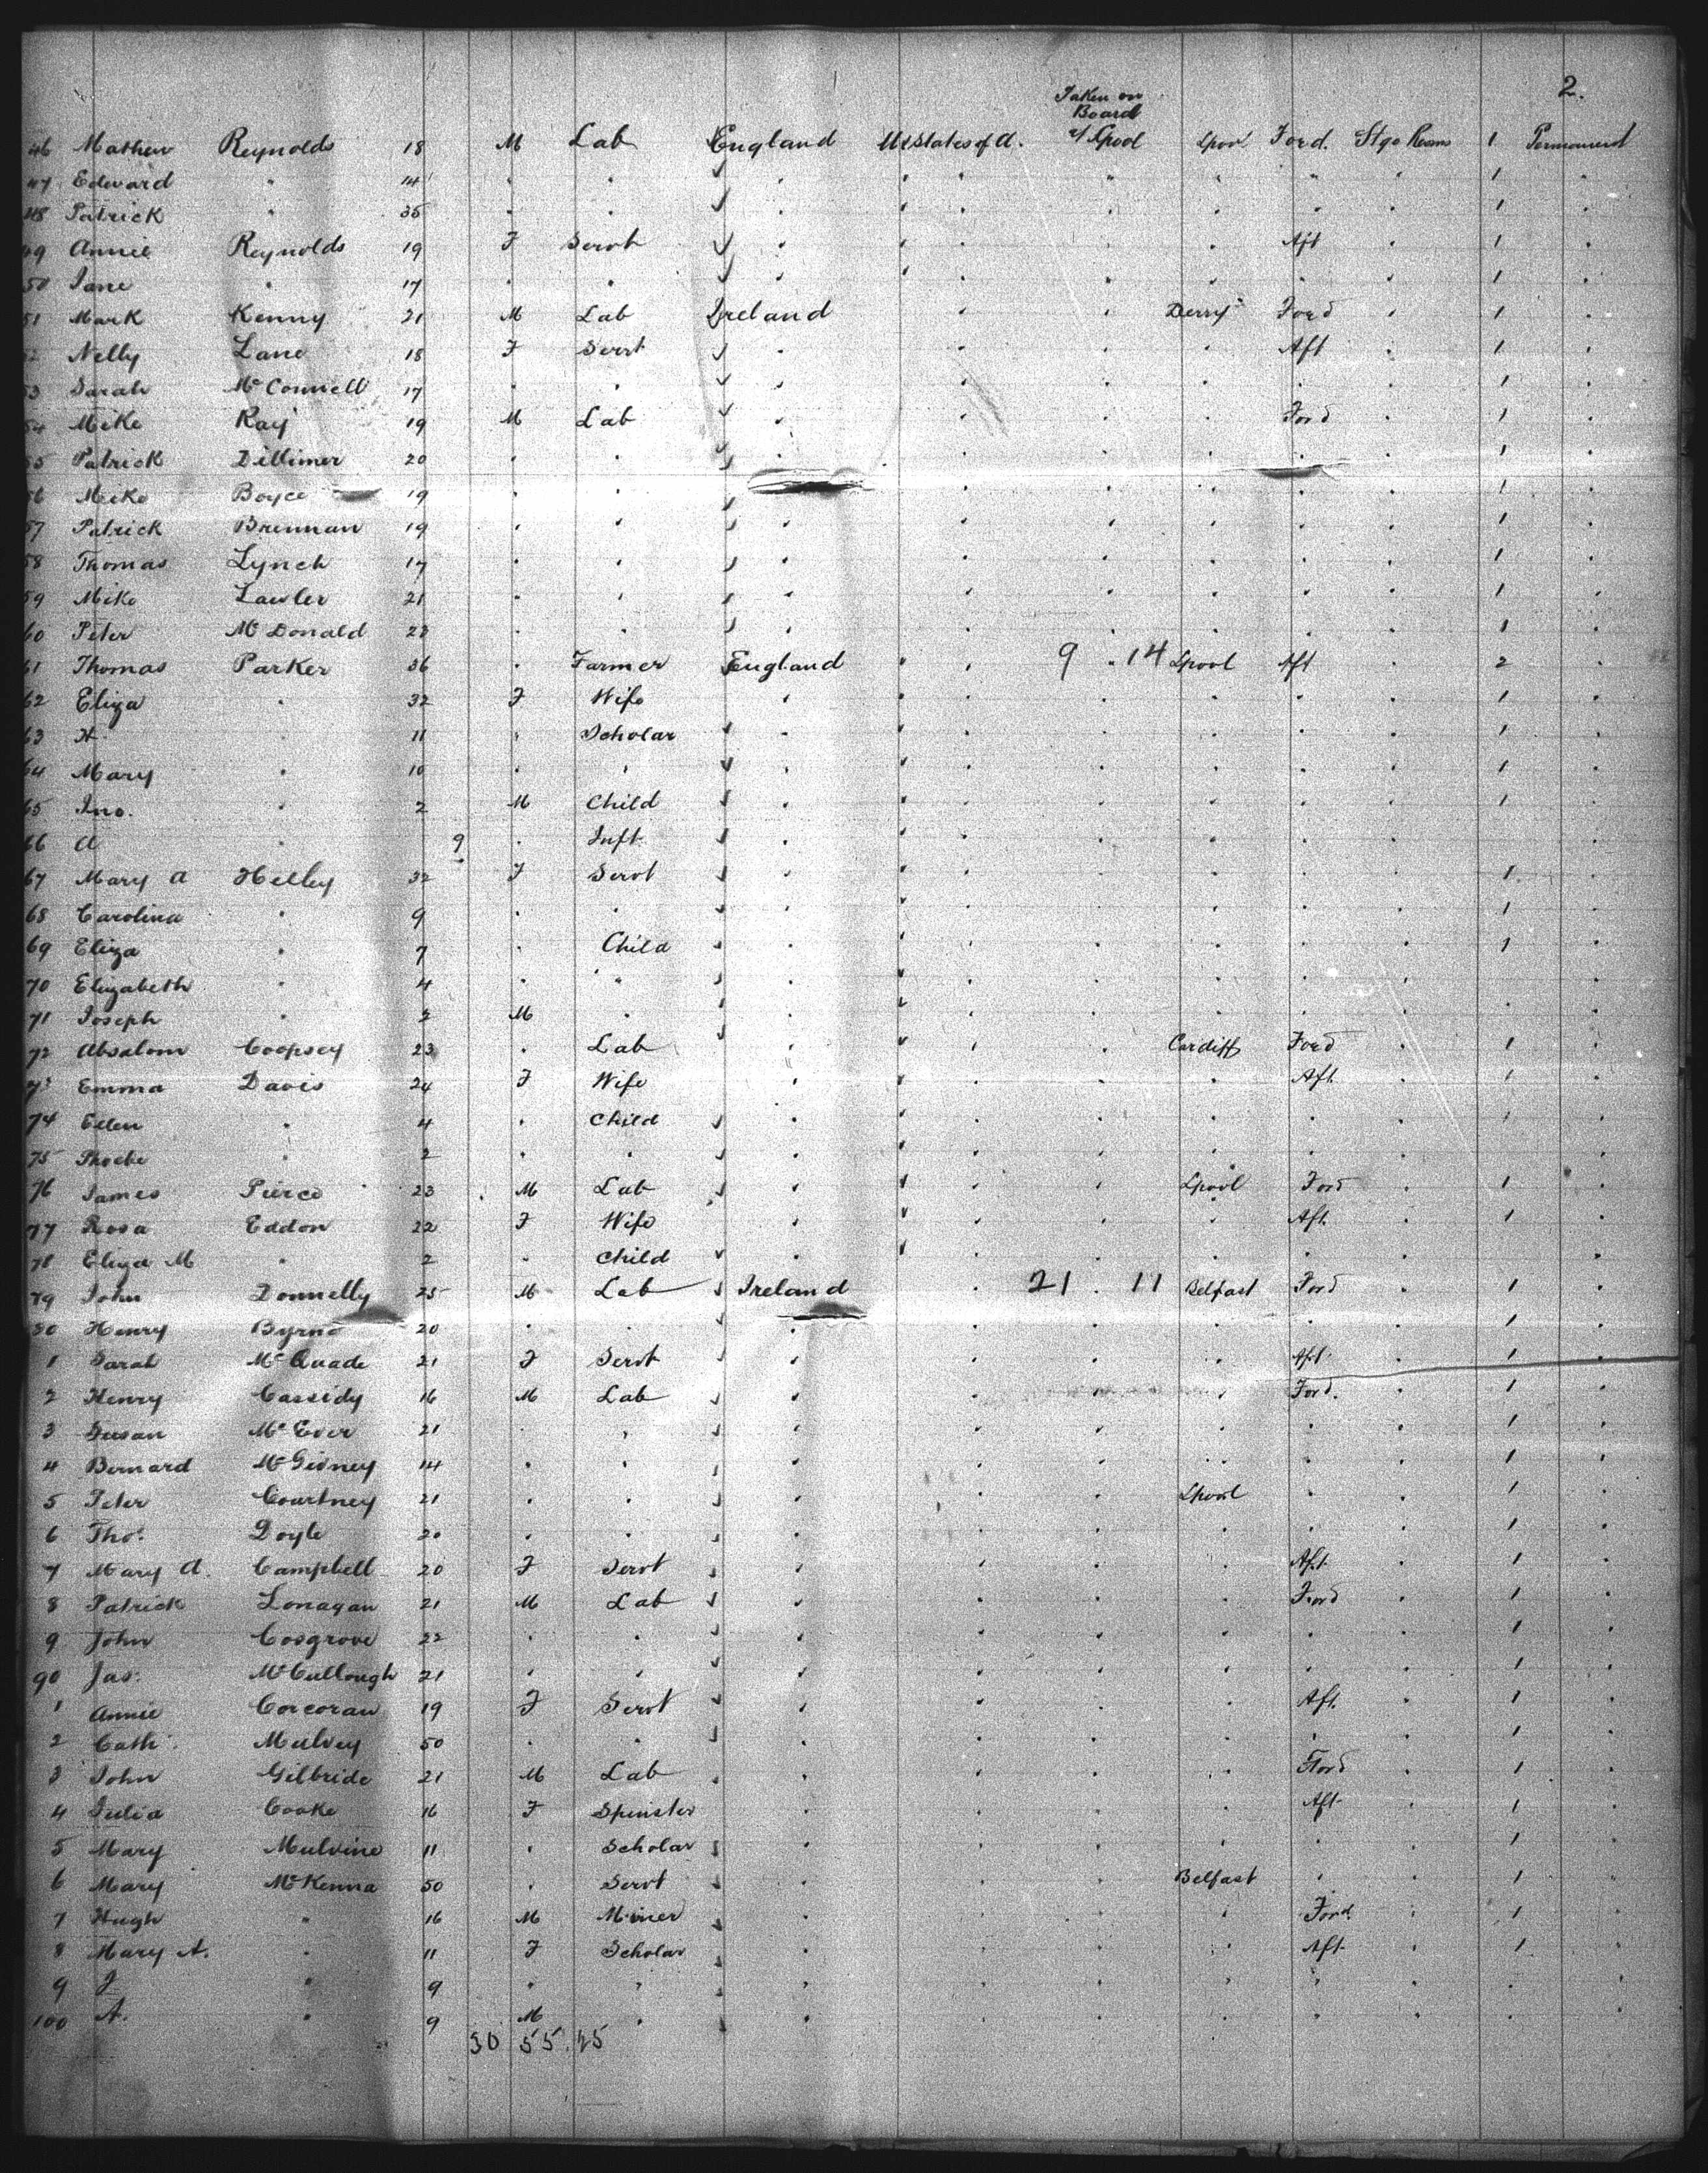 2.
Taken on
Board
46 Mathew Reynolds 18 M Lab England Ud States of A. Lpool Lpool Ford. Stge 1 Permanent
47 Edward " 14 " " " " " " " " " 1 "
48 Patrick " 35 " " " " " " " " " 1 "
49 Annie Reynolds 19 F Servt " " " " Aft " 1 "
50 Jane " 17 " " " " " " " " 1 "
51 Mark Kenny 21 M Lab Ireland " " Derry Ford " 1 "
52 Nelly Lane 18 F Servt " " " " Aft " 1 "
53 Sarah McConnell 17 " " " " " " " " 1 "
54 Mike Ray 19 M Lab " " " " Ford " 1 "
55 Patrick Dillimer 20 " " " " " " " " 1 "
56 Mike Boyce 19 " " " " " " " " 1 "
57 Patrick Brennan 19 " " " " " " " " 1 "
58 Thomas Lynch 17 " " " " " " " " 1 "
59 Mike Lawler 21 " " " " " " " " 1 "
60 Peter McDonald 22 " " " " " " " " 1 "
61 Thomas Parker 36 " Farmer England " " 9 " 14 Lpool Aft " 2 "
62 Eliza " 32 F Wife " " " " " " " 1 "
63 H " 11 " Scholar " " " " " " 1 "
64 Mary " 10 " " " " " " " " 1 "
65 Jno. " 2 M Child " " " " " " 1 "
66 A " 9 " Inft " " " " " " " "
67 Mary A Helley 32 F Servt " " " " " " 1 "
68 Carolina " 9 " " " " " " " " 1 "
69 Eliza " 7 " Child " " " " " " 1 "
70 Elizabeth " 4 " " " " " " " " " "
71 Joseph " 2 M " " " " " " " " "
72 Absalom Coopsey 23 " Lab " " " Cardiff Ford " 1 "
73 Emma Davis 24 F Wife " " " " Aft. " 1 "
74 Ellen " 4 " Child " " " " " " " "
75 Phoebe " 2 " " " " " " " " " "
76 James Pierce 23 M Lab " " " Lpool Ford " 1 "
77 Rosa Eddon 22 F Wife " " " " Aft. " 1 "
78 Eliza M " 2 " Child " " " " " " "
79 John Donnelly 25 M Lab Ireland " 21 . 11 Belfast Ford " 1 "
80 Henry Byrne 20 " " " " " " " " 1 "
1 Sarah McQuade 21 F Servt " " " " Aft " 1 "
2 Henry Cassidy 16 M Lab " " " " Ford. " 1 "
3 Susan McEver 21 " " " " " " " " 1 "
4 Bernard McGidney 14 " " " " " " " " 1 "
5 Peter Courtney 21 " " " " " Lpool " " 1 "
6 Thos. Doyle 20 " " " " " " " " 1 "
7 Mary A. Campbell 20 F Servt " " " " Aft. " 1 "
8 Patrick Lonagan 21 M Lab " " " " Ford " 1 "
9 John Cosgrove 22 " " " " " " " " 1 "
90 Jas. McCullough 21 " " " " " " " " 1 "
1 Annie Corcoran 19 F Servt " " " " Aft. " 1 "
2 Cath. Mulvey 50 " " " " " " " " 1 "
3 John Gilbride 21 M Lab " " " " Ford " 1 "
4 Julia Cooke 16 F Spinster " " " " Aft " 1 "
5 Mary Mulvine 11 " Scholar " " " " " " 1 "
6 Mary McKenna 50 " Servt " " " Belfast " " 1 "
7 Hugh " 16 M Miner " " " " Ford. " 1 "
8 Mary A. " 11 F Scholar " " " " Aft " 1 "
9 J " 9 " " " " " " " " " "
100 A. " 9 M " " " " " " " " "
30 55. 25